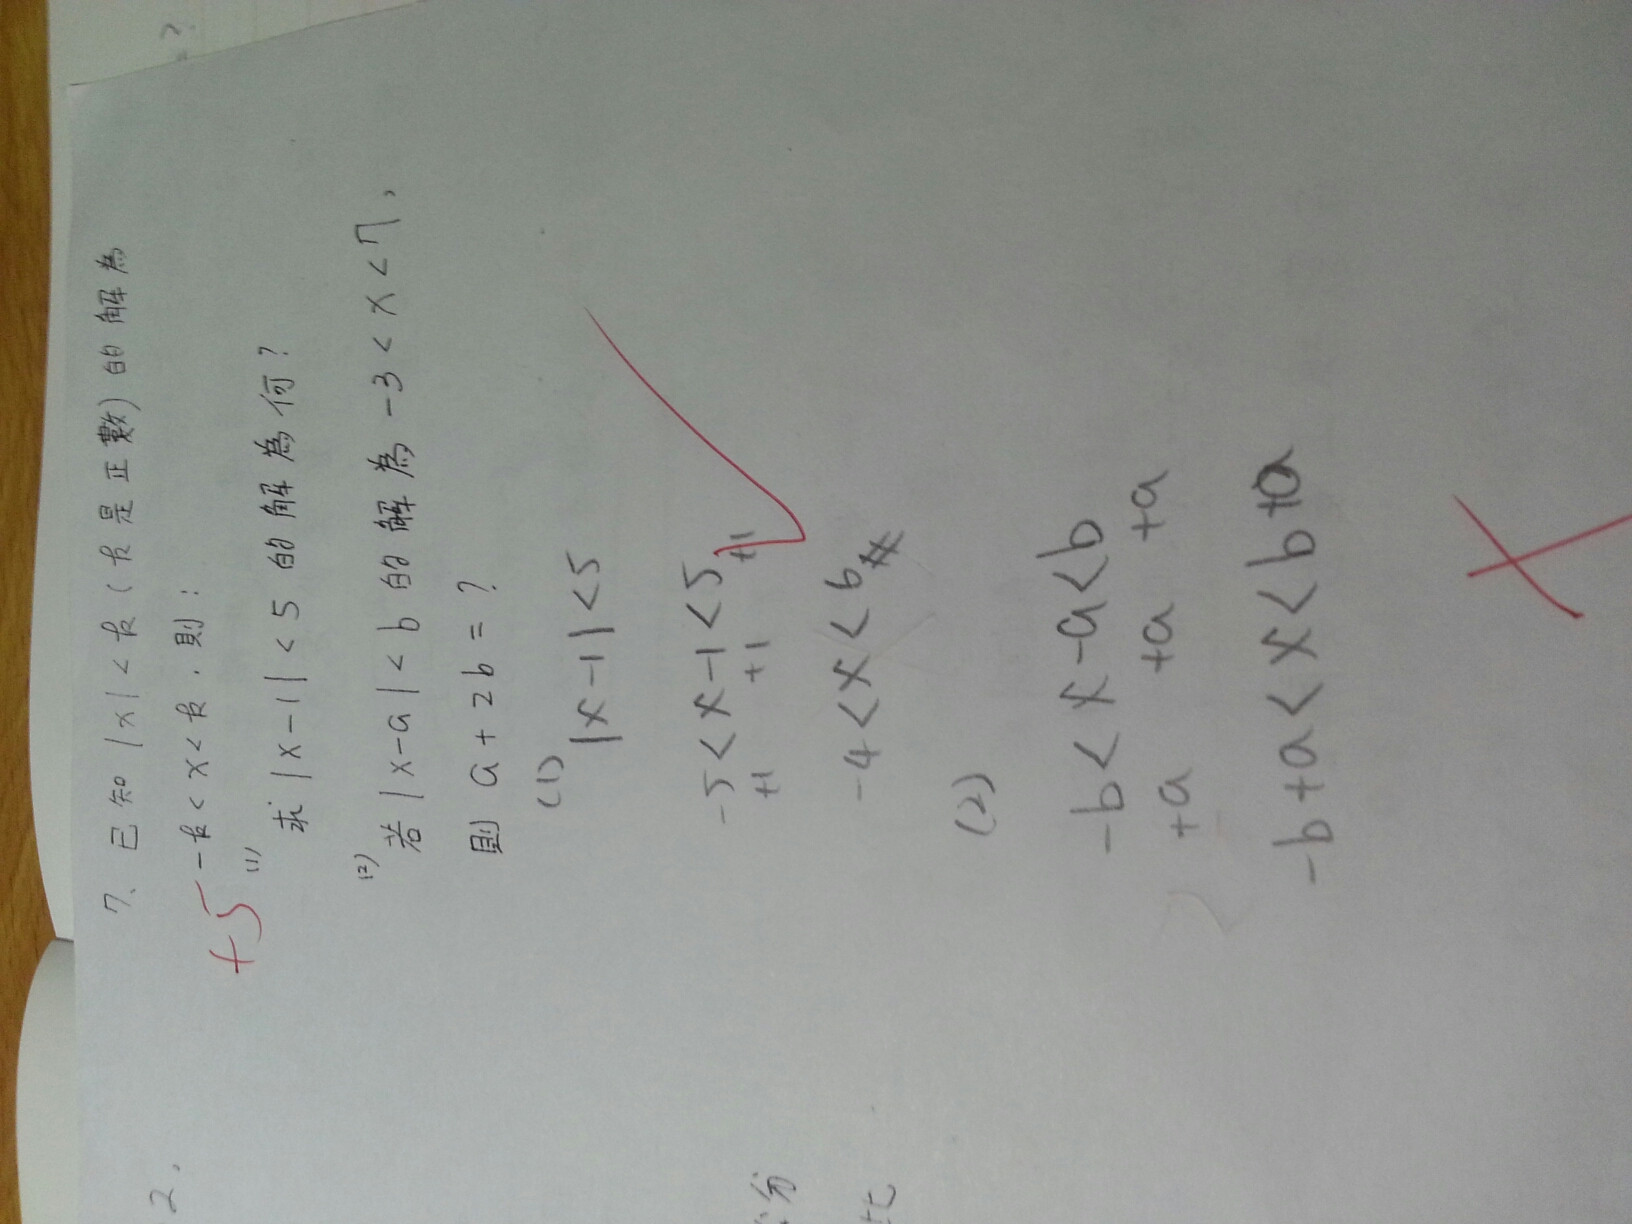 = ?
7、已知|x|<k(k是正數)的解為
-k<x<k,則:
+5
(1)
求|x-1|<5的解為何?
(2)
若|x-a|<b的解為-3<x<7,
則a+2b=?
(1)
|x-1|<5
-5<x-1<5
+1 +1 +1
-4<x<6#
(2)
-b<x-a<b
+a +a +a
-b+a<x<b+a
2、
分